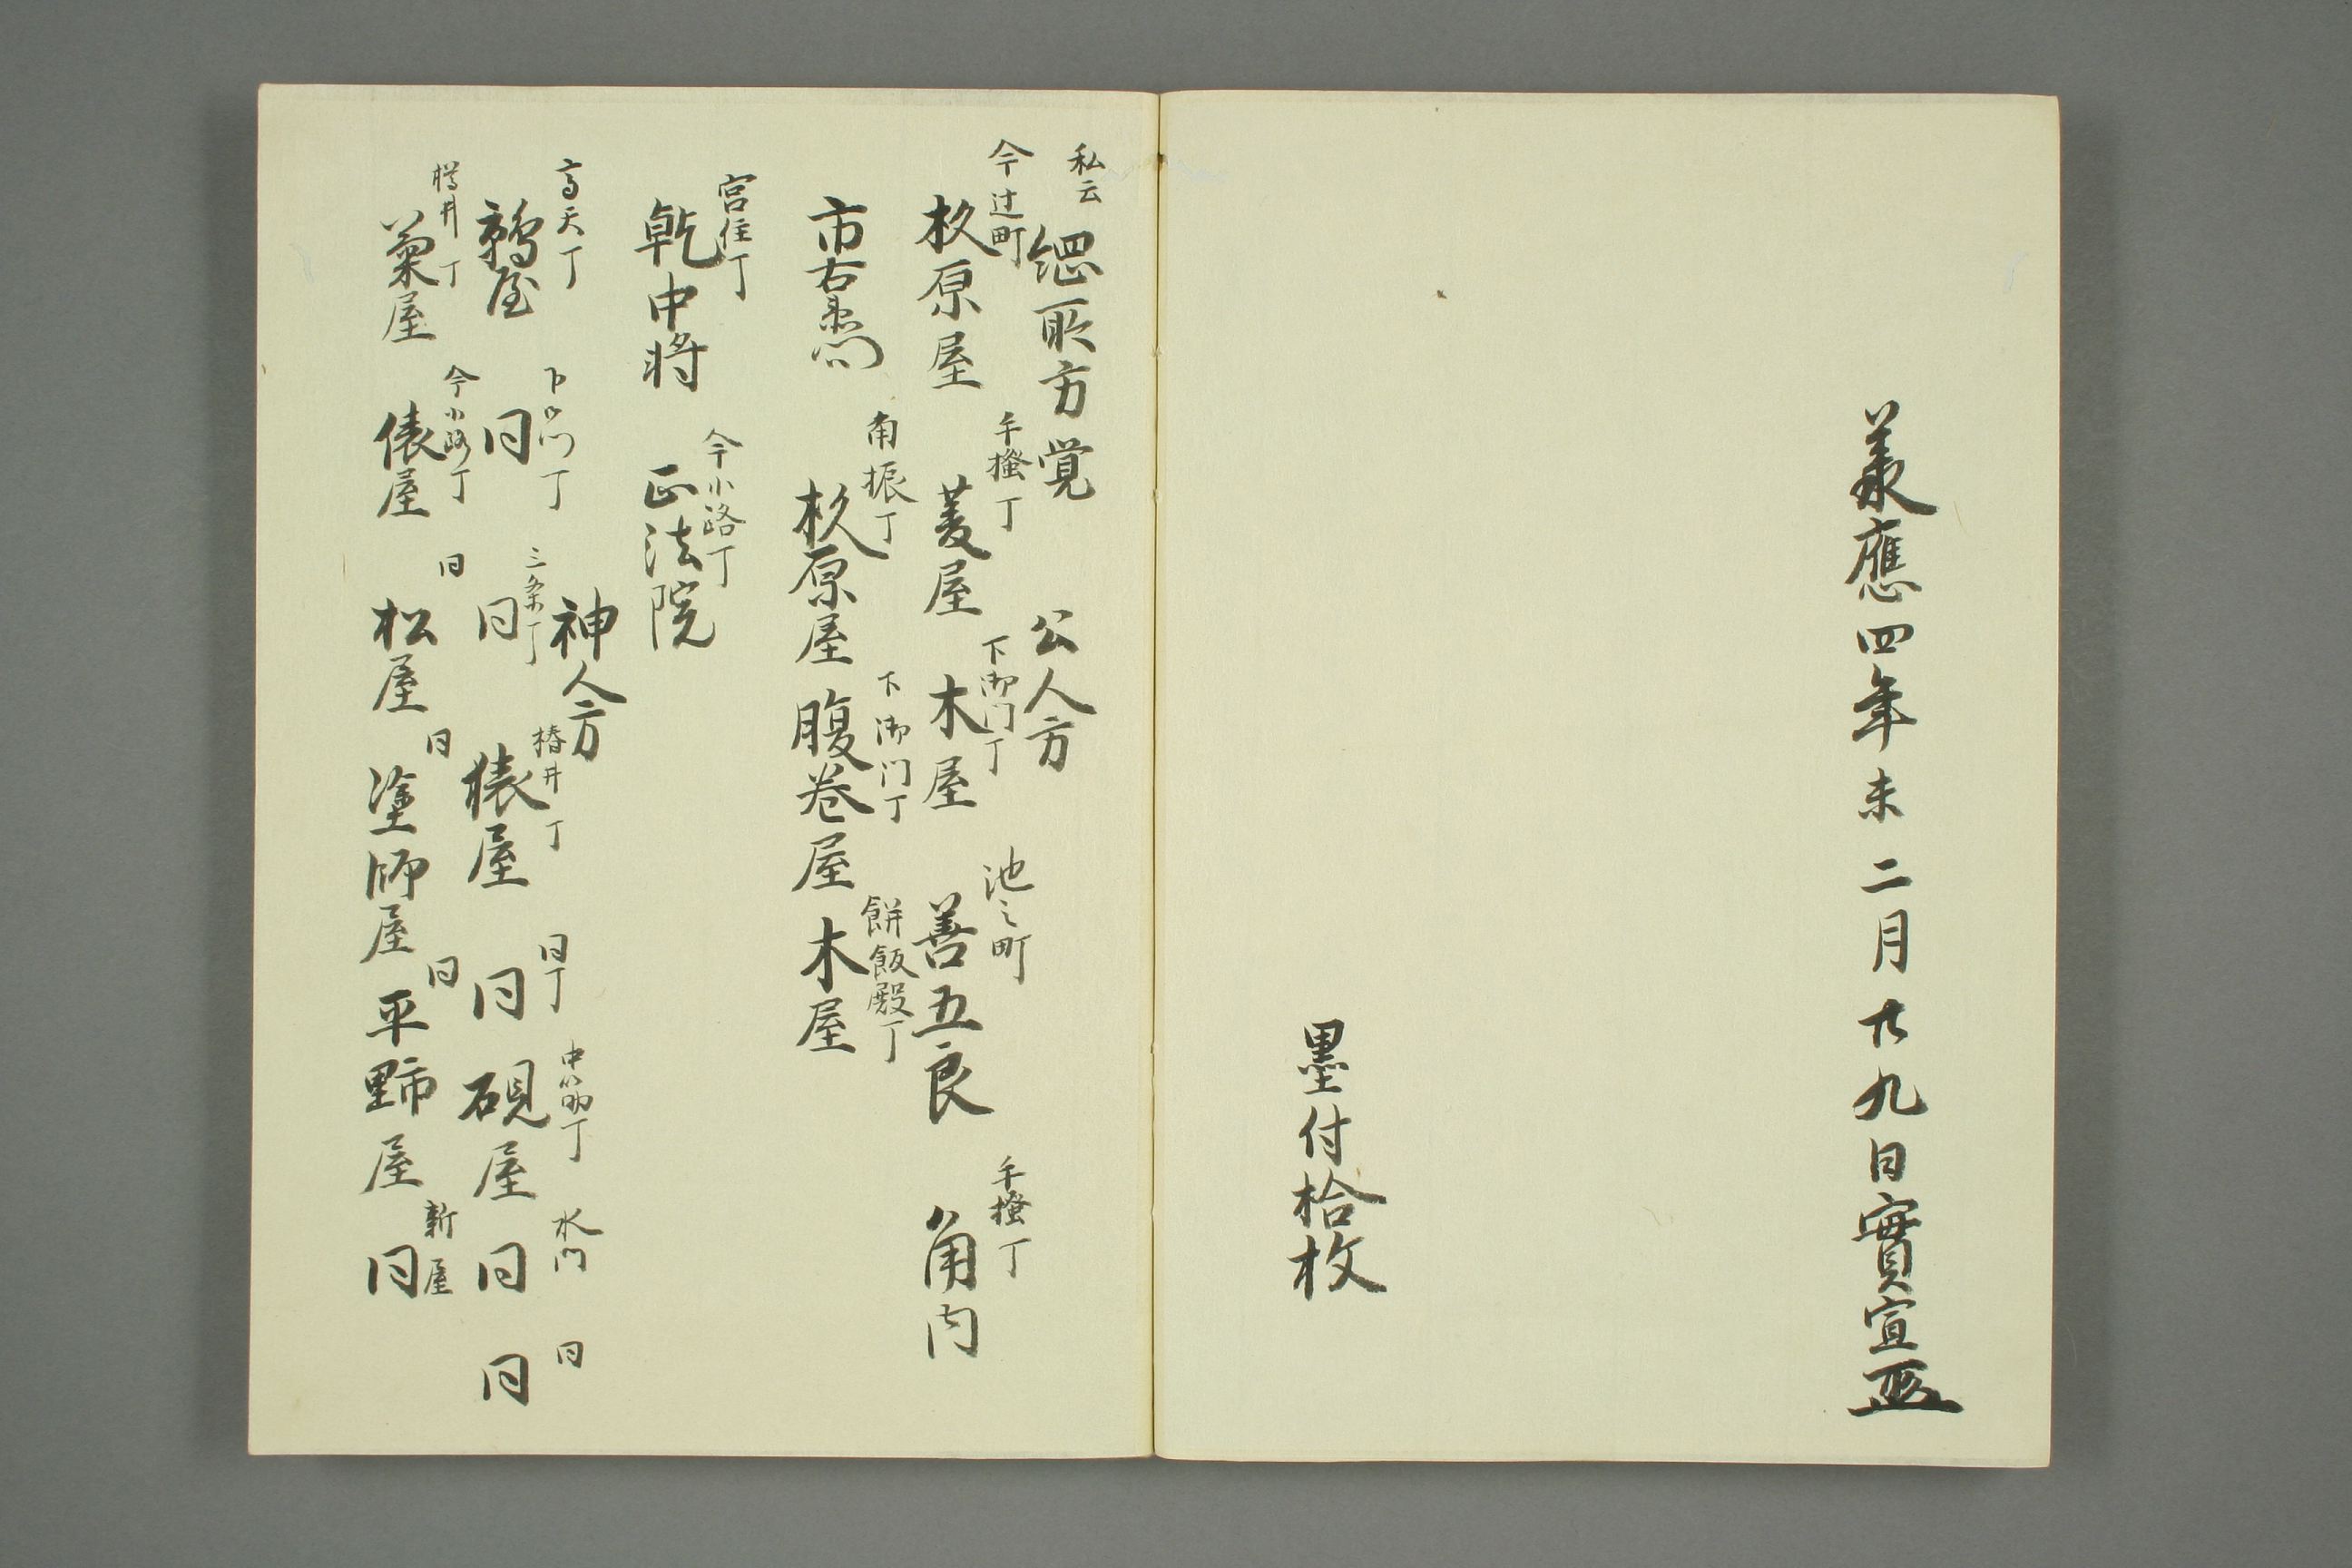 義應四年未二月廿九日實宣
墨付拾枚
私云
縂所方覚 公人方
今辻町 手掻丁 下御門丁 池之町 手掻丁
杦原屋 菱屋 木屋 善五良 角内
南振丁 下御门丁 餅飯殿丁
市右衛門 杦原屋 腹巻屋 木屋
宮住丁 今小路丁
乾中将 正法院
神人方
高天丁 下御门丁 三条丁 椿井丁 同丁 中筋丁 水门 同
鶴屋 同 同 俵屋 同 硯屋 同 同
樽井丁 今小路丁 同 同 同 新屋
菊屋 俵屋 松屋 塗師屋 平野屋 同